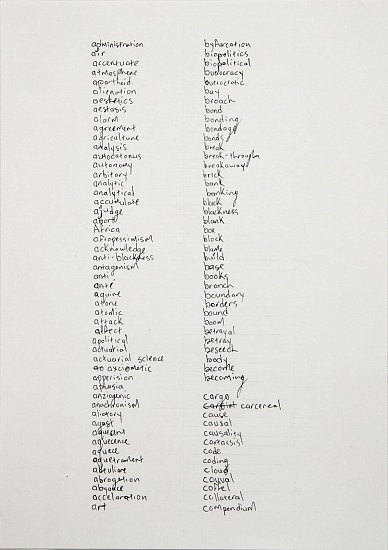 administration
air
accentuate
atmosphere
apartheid
alienation
aesthetics
aestasis
alarm
agreement
agriculture
analysis
autoctonus
autonomy
arbitory
analytic
analytical
accumulate
ajudge
abort
Africa
afropessimism
acknowledge
anti-blackness
antagonism
anti
anté
aquire
atone
atomic
attack
affect
apolitical
actuarial
actuarial science
axciometic
apperision
aphasia
anachronism
aliatory
agast
aquecence
abrogation
abyance
accelaration
art
byfurcation
biopolitics
biopolitical
burocracy
burocratic
buy
broach
bond
bonding
bondage
bonds
break
break-through
breakaway
brick
bank
banking
black
blackness
blank
box
block
blame
build
base
books
branch
boundary
borders
bound
boom
betrayal
betray
beseech
body
become
becoming
cargo
carcereal
cause
causal
causality
code
coding
cloud
collateral
compendium